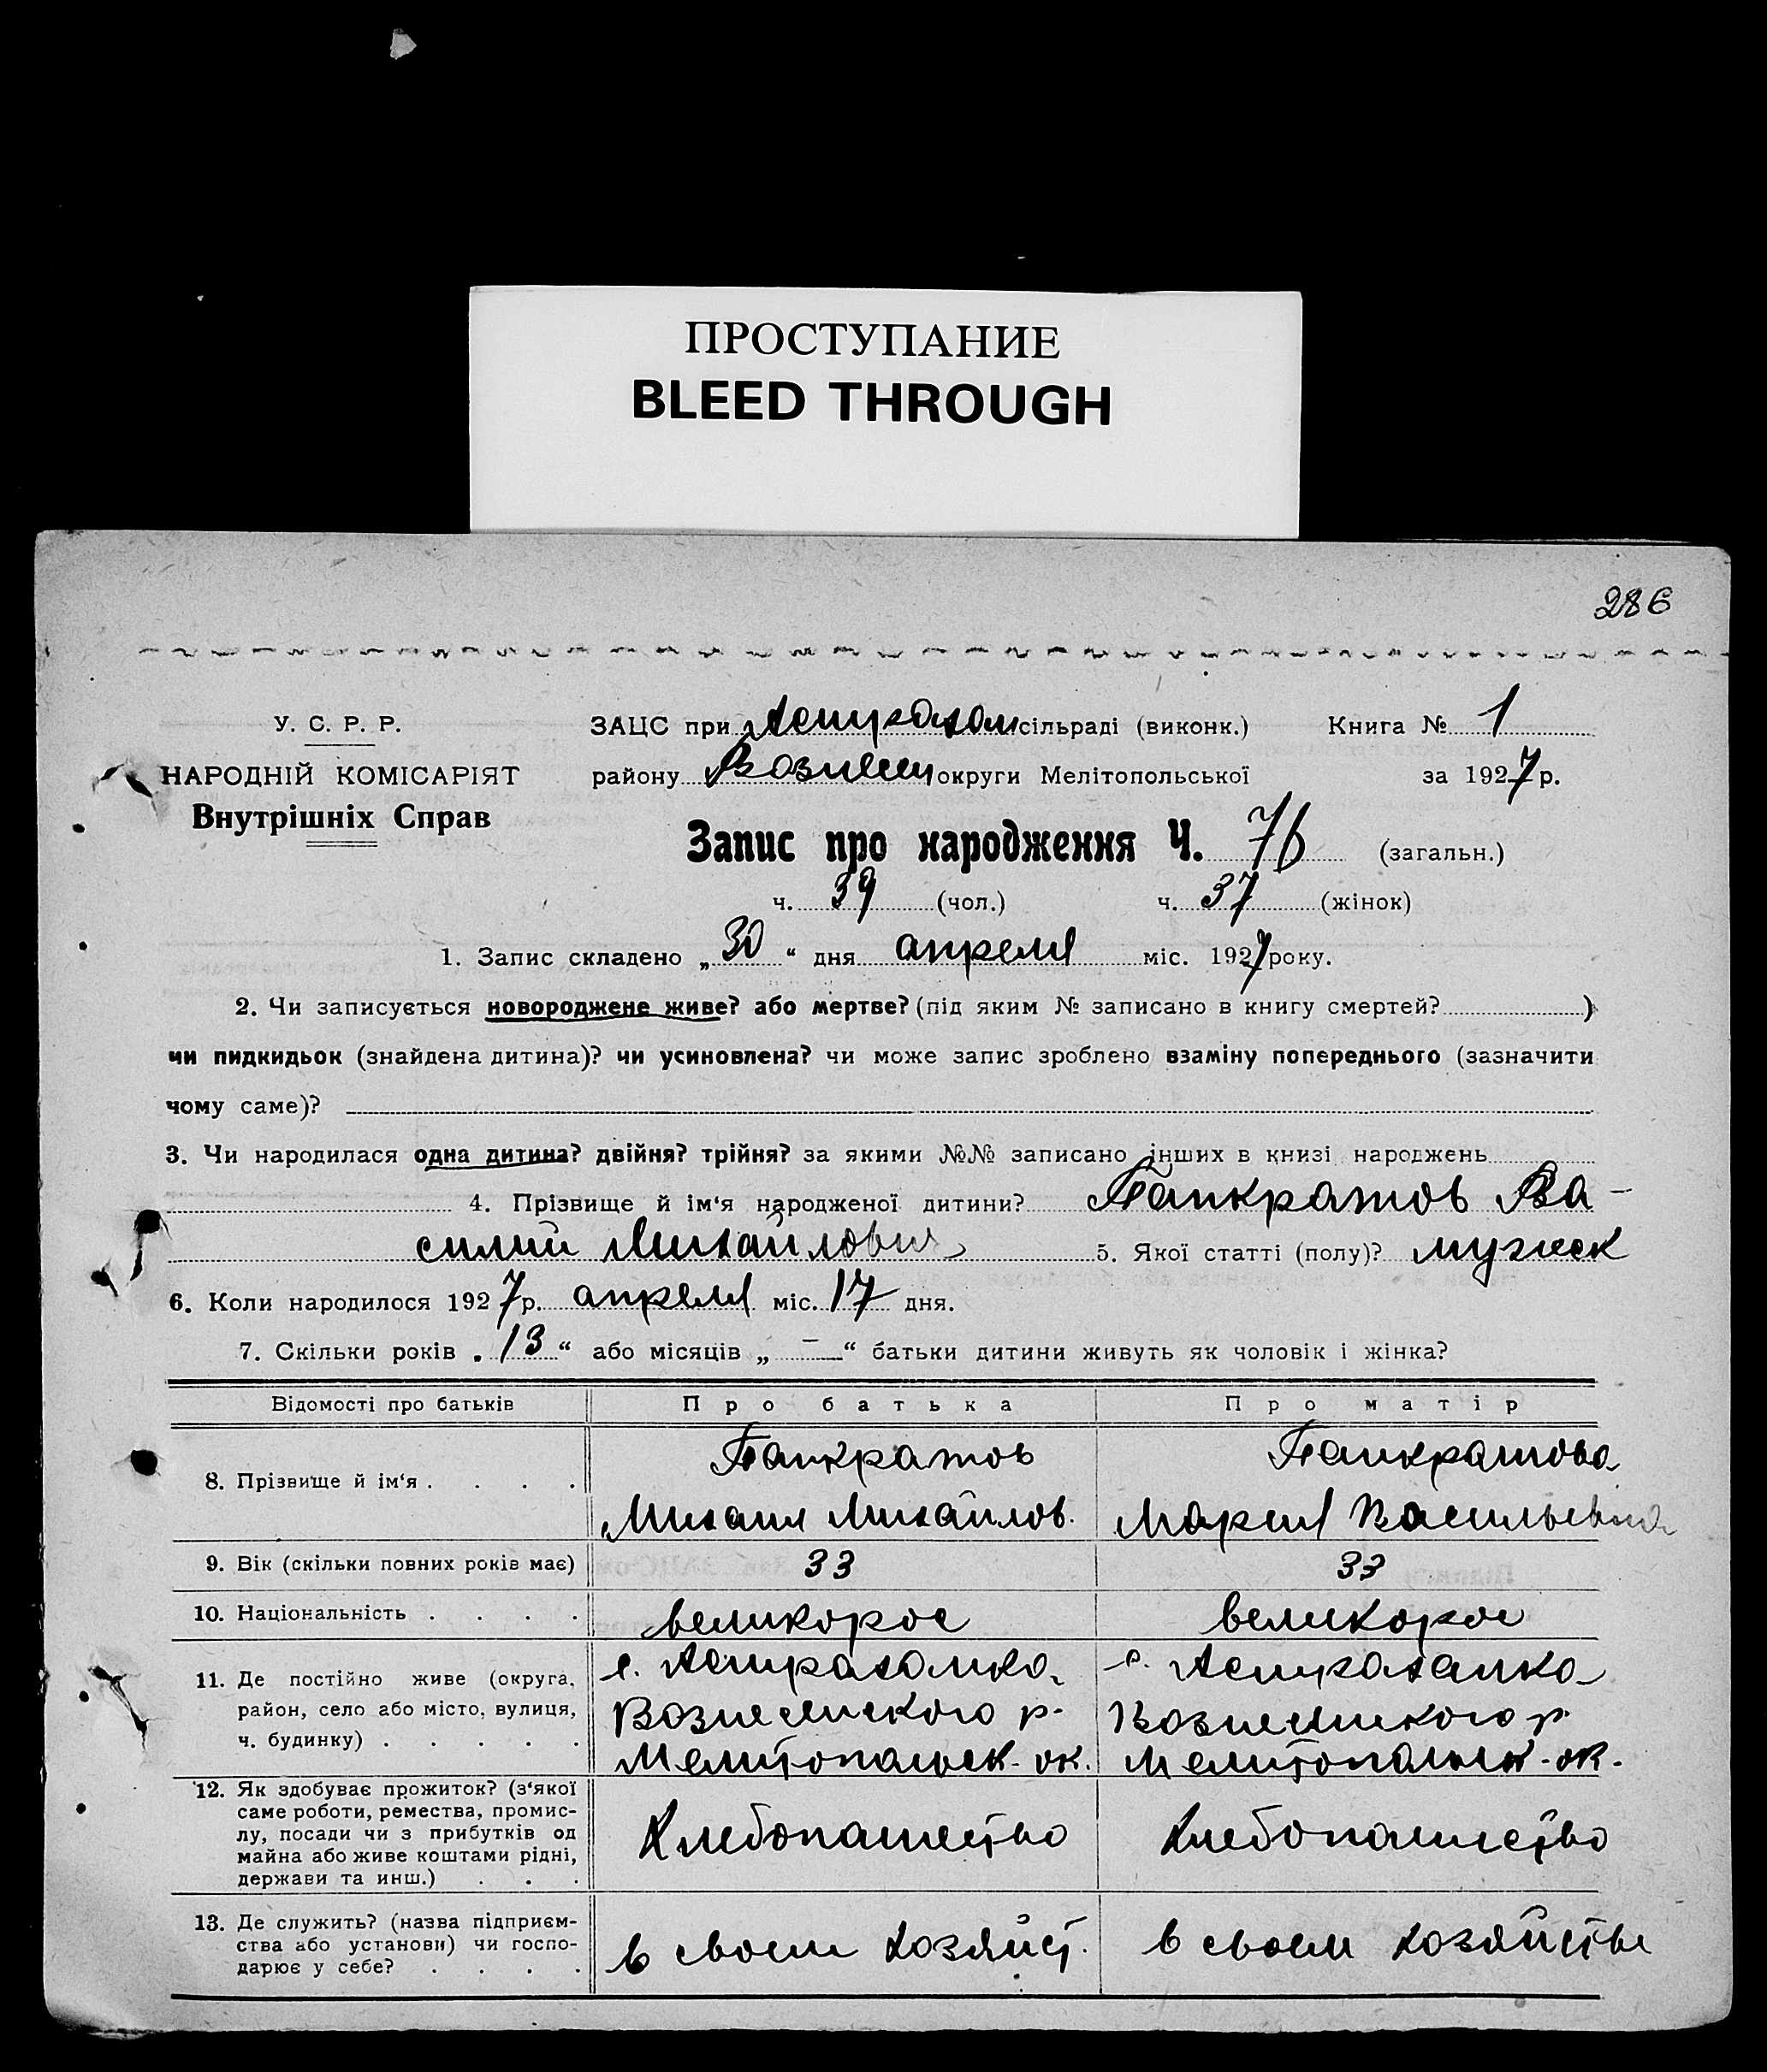 ПРОСТУПАНИЕ
BLEED THROUGH
286
У. С. Р. Р.
НАРОДНІЙ КОМІСАРІЯТ
Внутрішніх Справ
ЗАЦС при Астрахан сільраді (виконк.) Книга № 1
району Вознесен округи Мелітопольської за 1927 р.
Запис про народження Ч. 76 (загальн.)
ч. 39 (чол.) ч. 37 (жінок)
1. Запис складено „30“ дня апреля міс. 1927 року.
2. Чи записується новороджене живе? або мертве? (під яким № записано в книгу смертей? )
чи пидкидьок (знайдена дитина)? чи усиновлена? чи може запис зроблено взаміну попереднього (зазначити
чому саме)?
3. Чи народилася одна дитина? двійня? трійня? за якими №№ записано інших в книзі народжень
4. Прізвище й ім‘я народженої дитини? Панкратов Ва-
силий Михайлович 5. Якої статті (полу)? мужеск
6. Коли народилося 1927 р. апреля міс. 17 дня.
7. Скільки років „13“ або місяців „—“ батьки дитини живуть як чоловік і жінка?
Відомості про батьків Про батька Про матір
8. Прізвище й ім‘я . . . . Панкратов Панкратова
Михаил Михайлов. Мария Васильевна
9. Вік (скільки повних років має) 33 33
10. Національність . . . . великорос великорос
11. Де постійно живе (округа, с. Астраханка с. Астраханка
район, село або місто, вулиця, Вознесенского р. Вознесенского р.
ч. будинку) . . . . . Мелитопольск. ок. Мелитопольск. ок.
12. Як здобуває прожиток? (з‘якої
саме роботи, ремества, промис-
лу, посади чи з прибутків од Хлебопашество Хлебопашество
майна або живе коштами рідні,
держави та инш.) . . .
13. Де служить? (назва підприєм-
ства або установи) чи госпо- в своем хозяйст. в своем хозяйстве
дарює у себе? . . . .